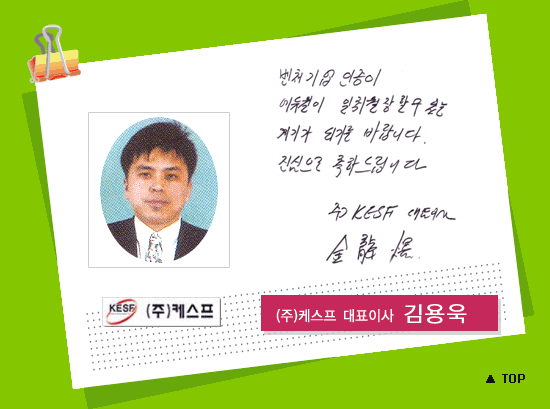 벤처기업 인증이
일취월장 할 수 있는
계기가 되기를 바랍니다.
진심으로 축하드립니다
주) KESF 대표이사
金龍煜
KESF (주)케스프
(주)케스프 대표이사 김용욱
▲ TOP